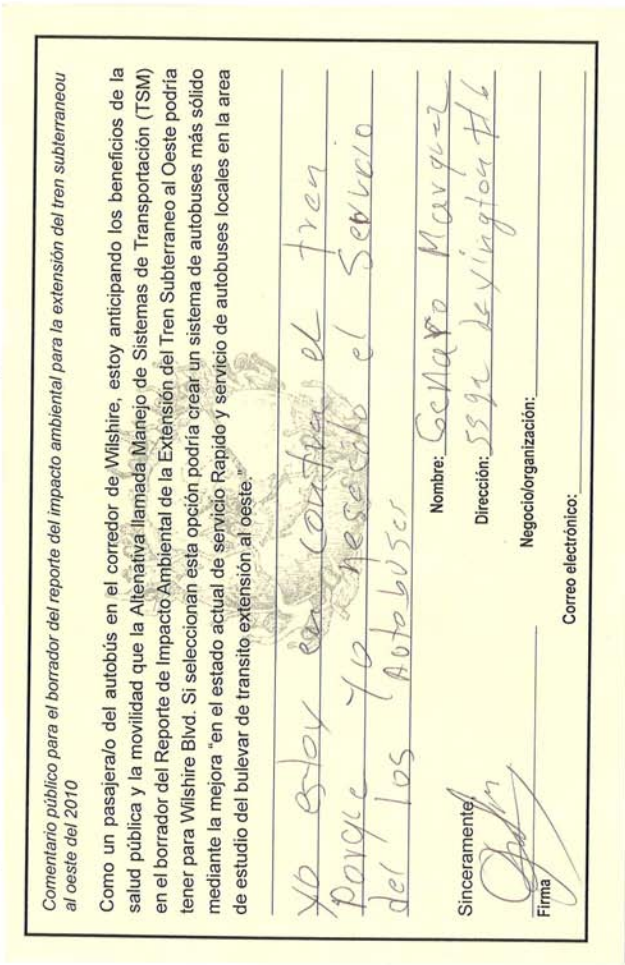 Comentario público para el borrador del reporte del impacto ambiental para la extensión del tren subterraneou
al oeste del 2010
Como un pasajera/o del autobús en el corredor de Wilshire, estoy anticipando los beneficios de la
salud pública y la movilidad que la Altenativa llamada Manejo de Sistemas de Transportación (TSM)
en el borrador del Reporte de Impacto Ambiental de la Extensión del Tren Subterraneo al Oeste podría
tener para Wilshire Blvd. Si seleccionan esta opción podría crear un sistema de autobuses más sólido
mediante la mejora "en el estado actual de servicio Rapido y servicio de autobuses locales en la area
de estudio del bulevar de transito extensión al oeste."
Yo estoy en contra el tren
Porque Yo nesesito el Servicio
del los Autobuses
Sinceramente,
Firma
Nombre: Genaro Marquez
Dirección: Lexington #6
Negocio/organización:
Correo electrónico: